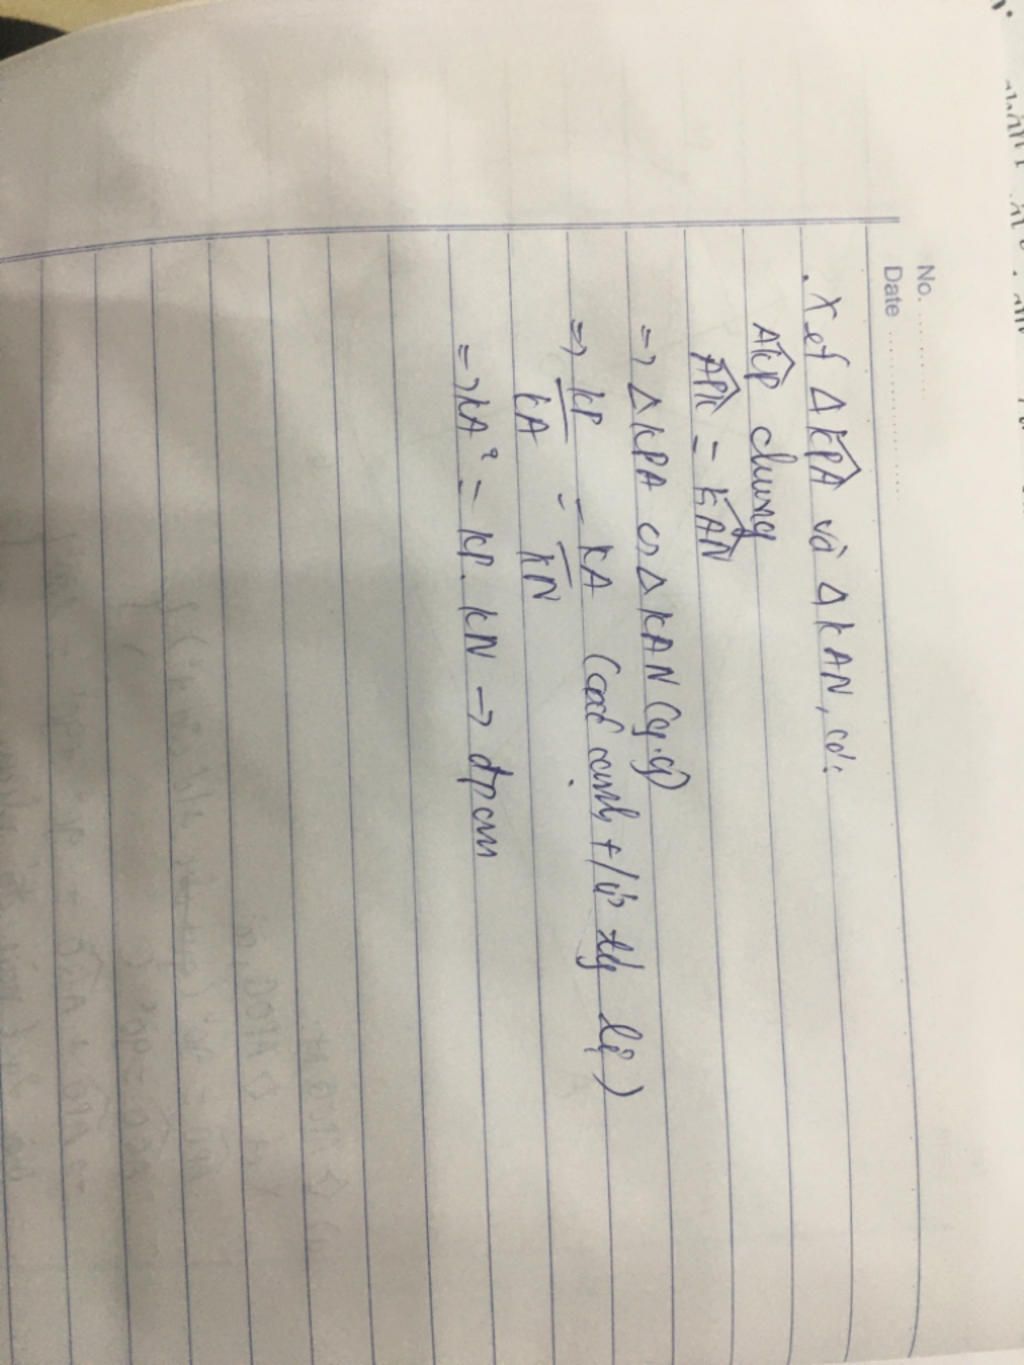 No. ............
Date ....................
. Xét Δ KPA và Δ KAN, có:
AKP chung
APK = KAN
=> Δ KPA ∽ Δ KAN (g.g)
=> KP/KA = KA/KN (các cạnh t/ứ tỷ lệ)
=> KA² = KP. KN -> đpcm